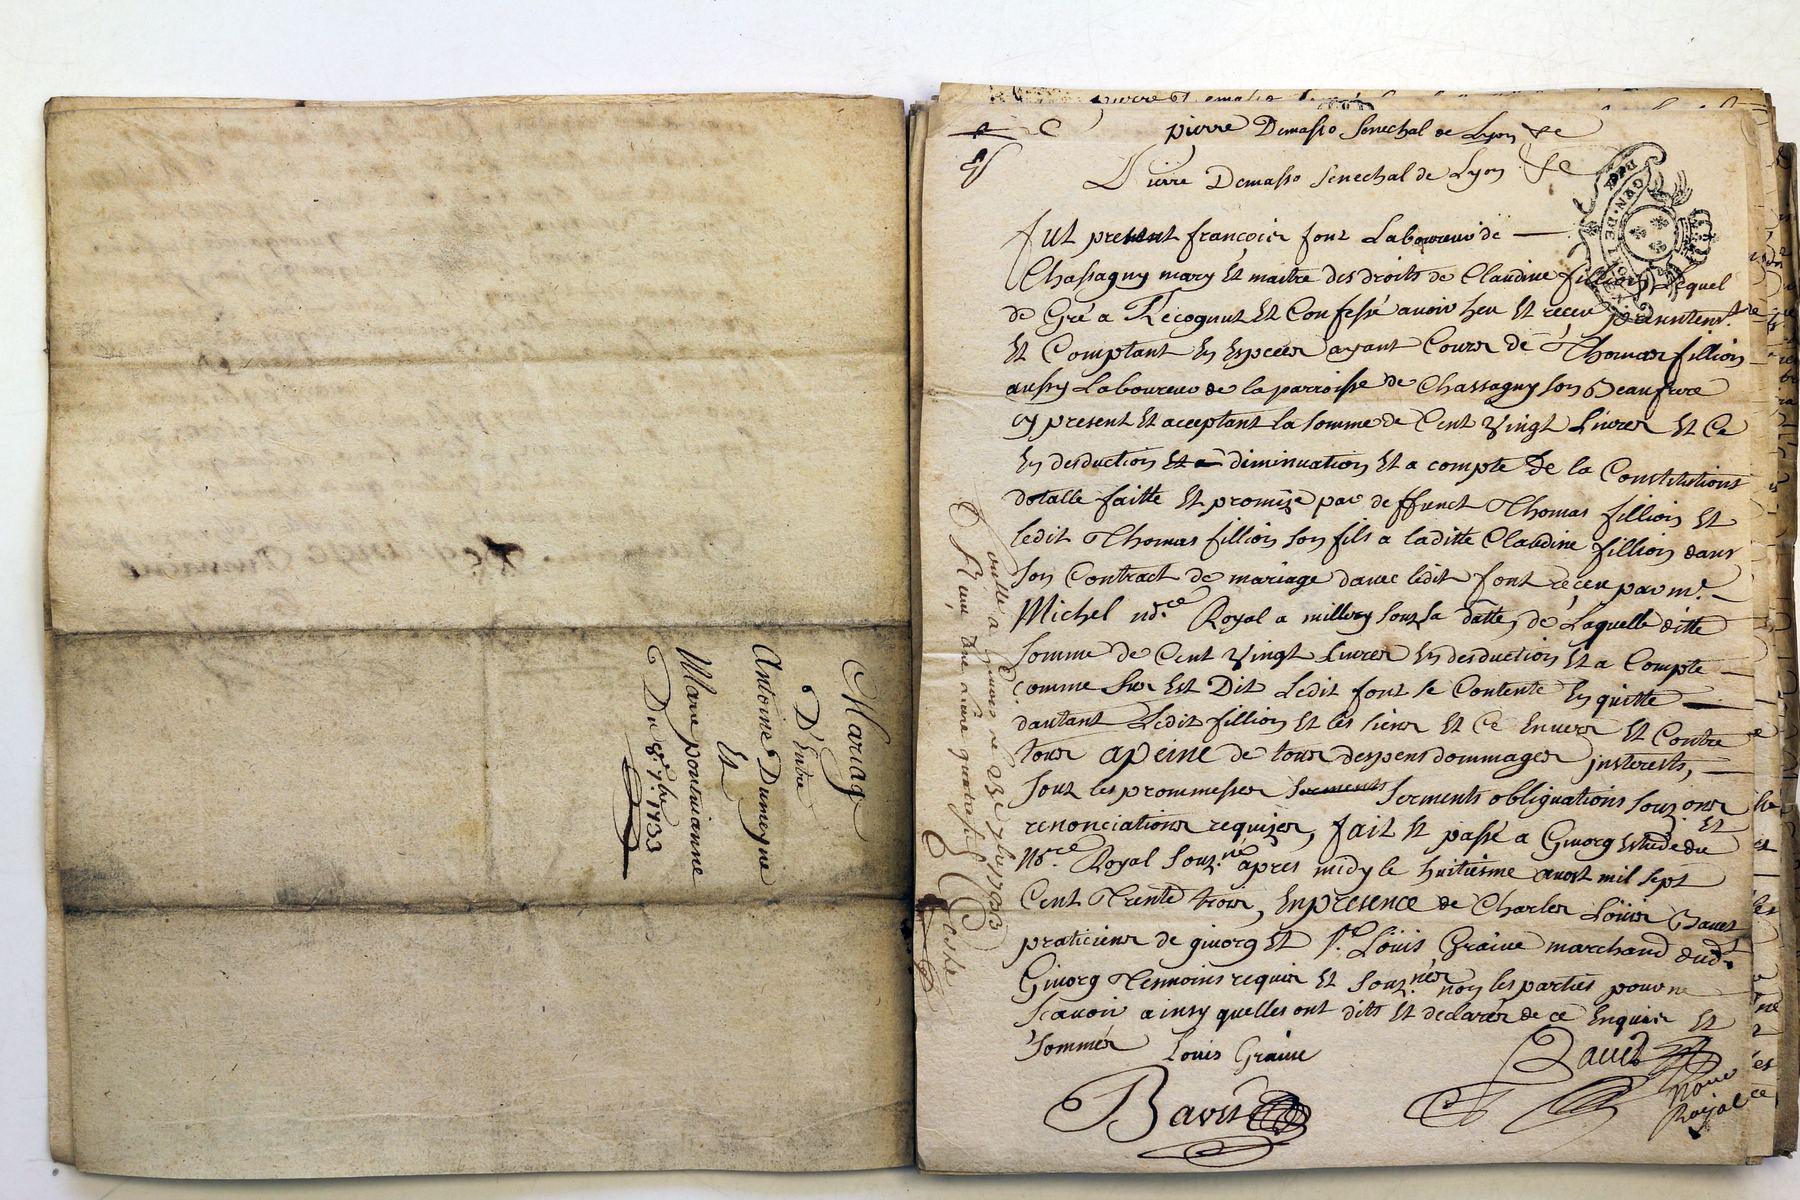 Mariage
D'Entre
Antoine Dumeyne
Et
Marie pontuianne
Du 8.e 7.bre 1733
pierre Demasso Senechal de Lyon &c
Pierre Demasso Senechal de Lyon &c
Fut present françois font Laboureur de
Chassagny mary Et maitre des droits de Claudine fillion Lequel
de Gré a Recognut Et Confessé auoir heu Et receu presentem.t
Et Comptant En Especes ayant Cours de Thomas fillion
aussy Laboureur de la parroisse de Chassagny son Beaufrere
cy present Et aceptant La somme de Cent Vingt Liures Et Ce
En desduction Et a diminuation Et a compte De la Constitution
dotalle faitte Et promise par deffunct Thomas fillion Et
ledit Thomas fillion son fils a laditte Claudine fillion dans
son Contract de mariage dauec ledit font receu par m.e
Michel no.re Royal a millery Souz sa datte, de Laquelle ditte
somme de Cent Vingt Liures En desduction Et a Compte
comme Sus Est Dit Ledit font se Contente En quitte
dautant Ledit fillion Et les siens Et Ce Enuers Et Contre
tous apeine de tous despens dommages justerests,
Souz les prommesses Serments Serments obligations Souz ons Et
renonciations requises, fait Et passé a Giuors Estude du
No.re Royal Souz.né apres midy le huitiesme aoust mil sept
Cent Trente trois, En presence de Charles Loüis Bauet
praticien de giuors Et S.r Loüis Graiue marchand dud.t
Giuors Temoins requis Et Souz.nés non les parties pour ne
Scauoir ainsy quelles ont dits Et declarés de ce Enquis Et
Sommés Louis Graiue
Bauet
Royal